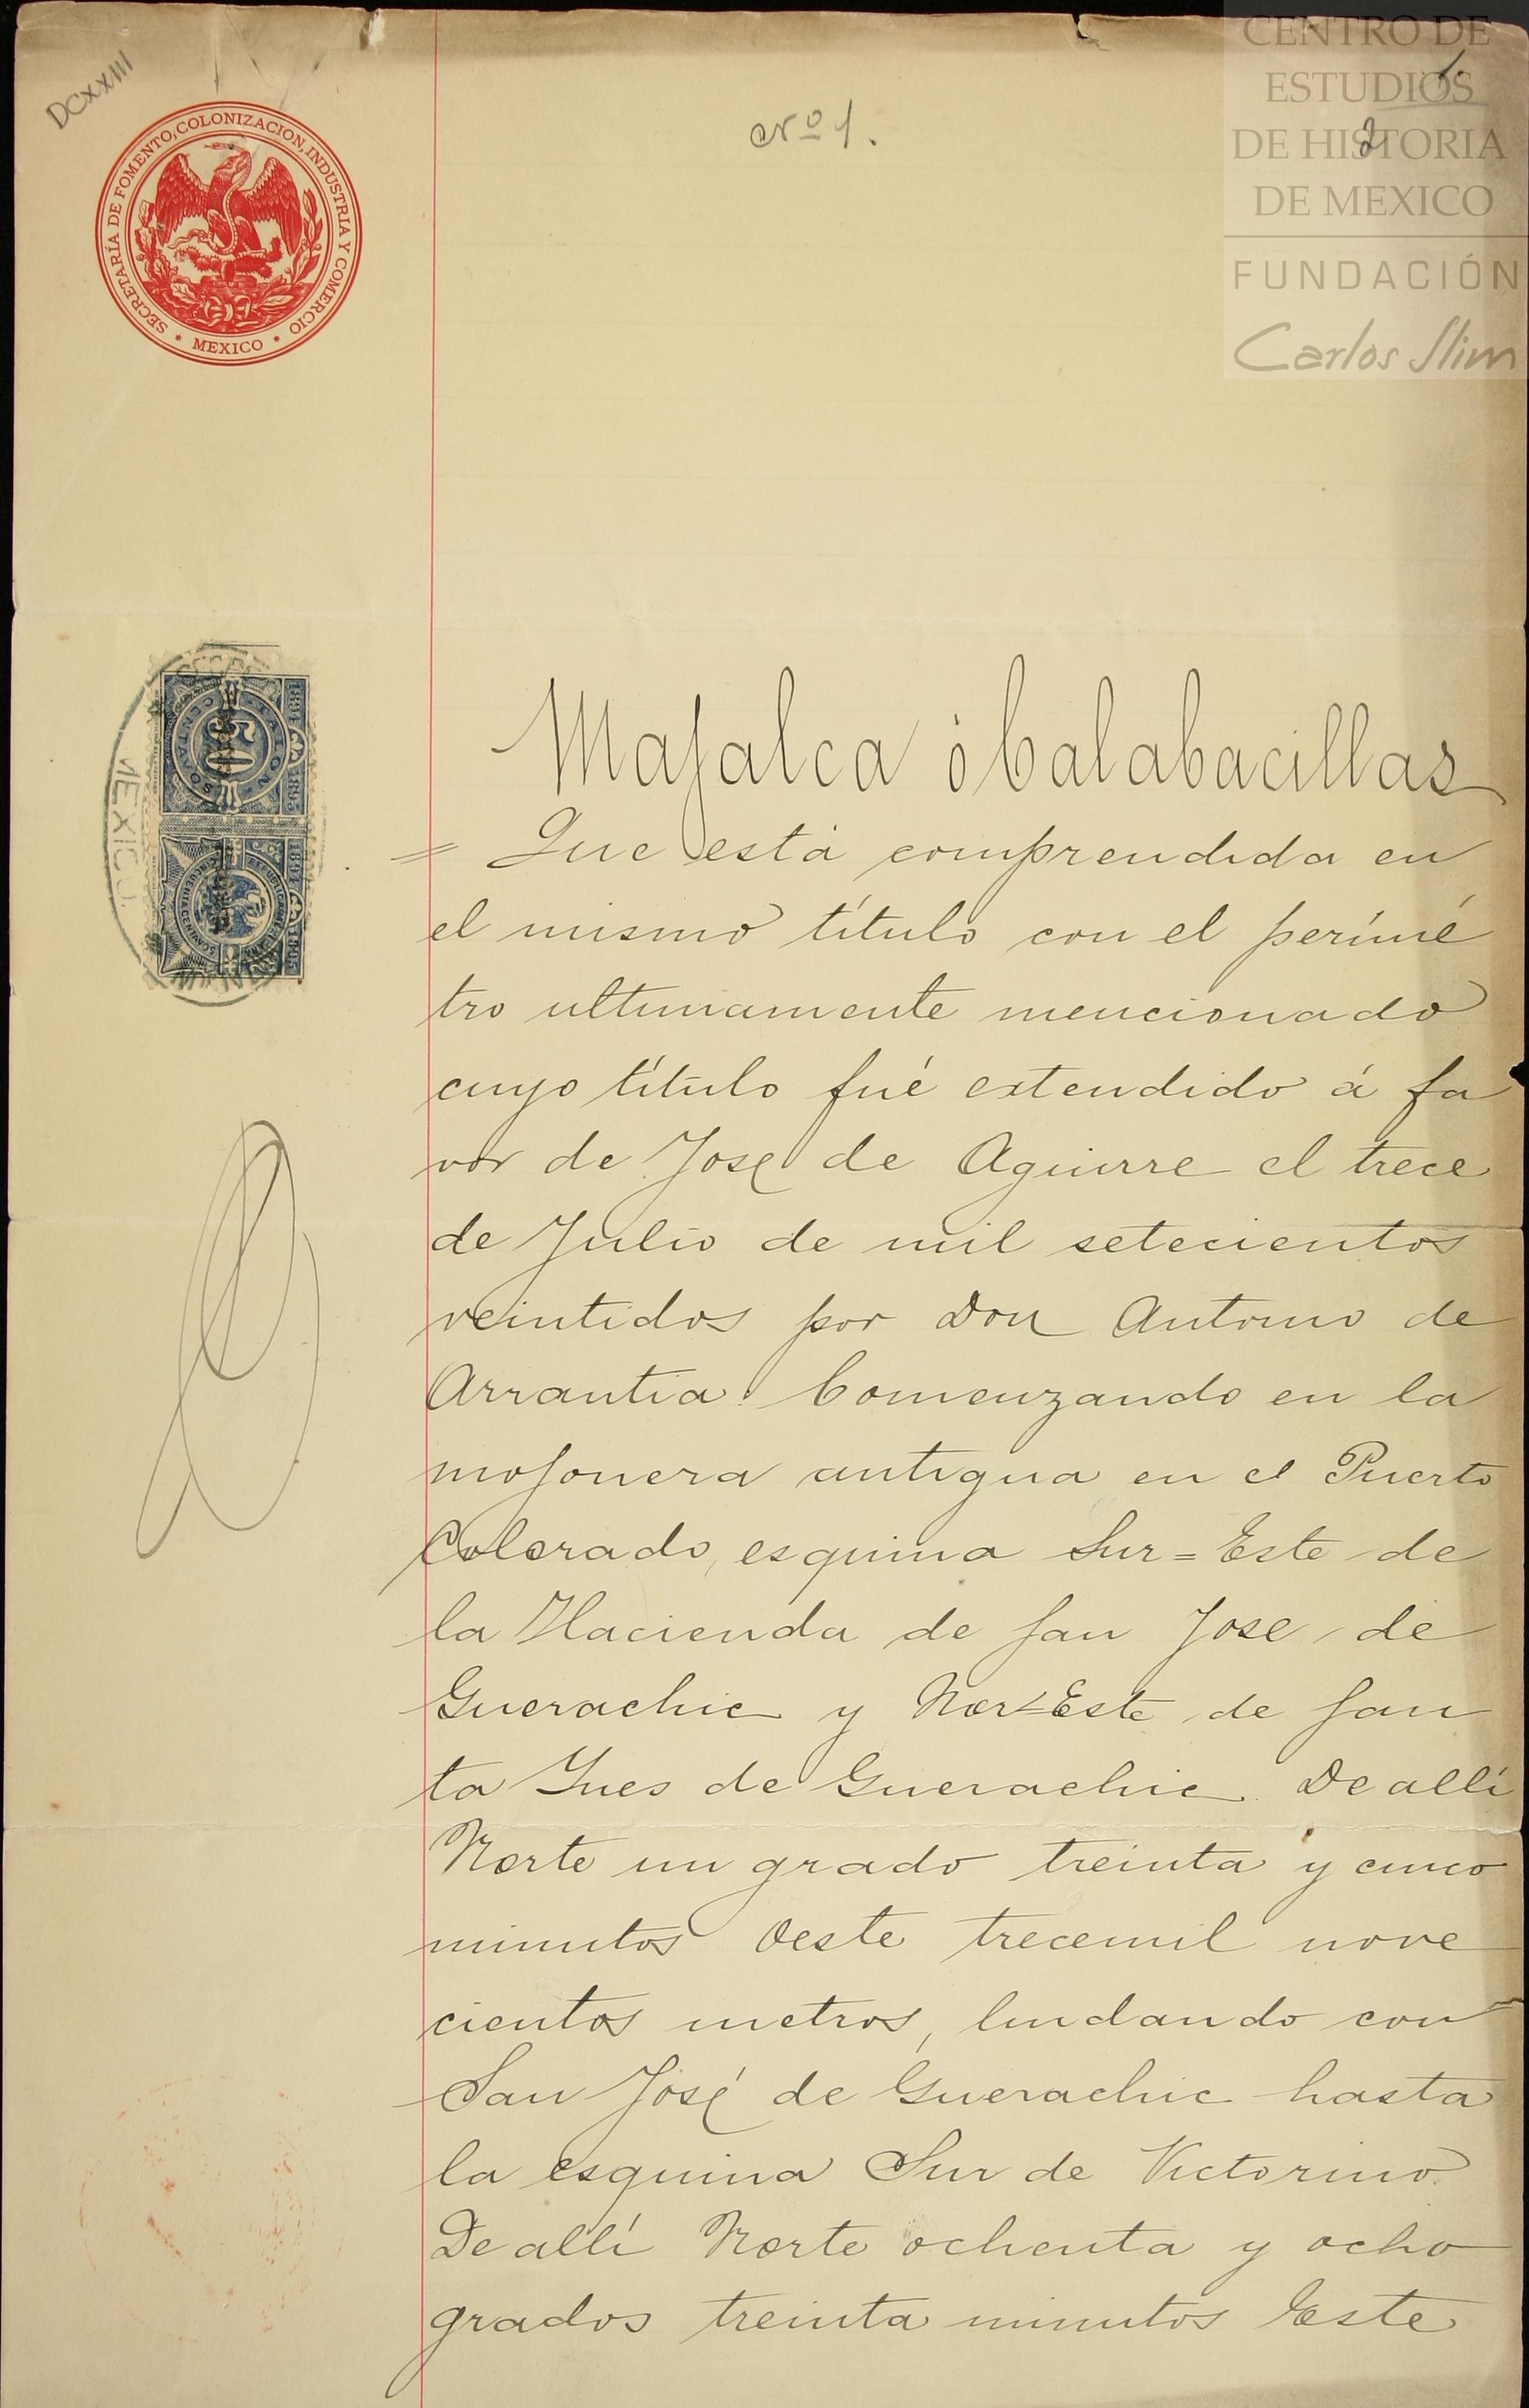 DCXXIII
SECRETARÍA DE FOMENTO, COLONIZACION, INDUSTRIA Y COMERCIO
* MEXICO *
Nº 1.
CENTRO DE
ESTUDIOS
DE HISTORIA
DE MEXICO
FUNDACIÓN
Carlos Slim
2
MEXICO
1894 1895
1894 1895
Majalca ó Calabacillas
= Que está comprendida en
el mismo título con el perímé
tro ultimamente mencionado
cuyo título fué extendido á fa
vor de José de Aguirre el trece
de Julio de mil setecientos
veintidos por Don Antonio de
Arrantia. Comenzando en la
mojonera antigua en el Puerto
Colorado, esquina Sur=Este de
la Hacienda de San Jose de
Guerachic y Nor=Este de San
ta Ynes de Guerachic. De allí
Norte un grado treinta y cinco
minutos Oeste trecemil nove
cientos metros, lindando con
San José de Guerachic hasta
la esquina Sur de Victorino.
De allí Norte ochenta y ocho
grados treinta minutos Este